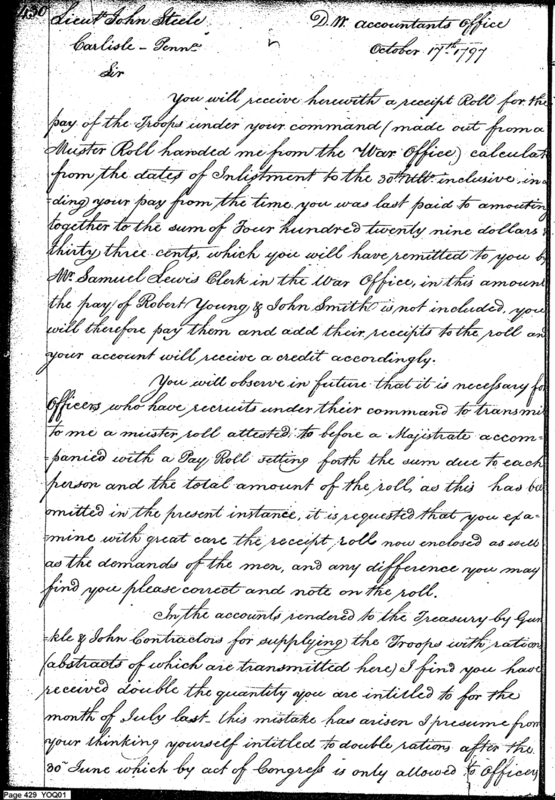 430
Lieut John Steele
D.W. Accountants Office
Carlisle - Penna
October 17th 1797
Sir
You will receive herewith a receipt Roll for the
pay of the Troops under your command (made out from a
Muster Roll handed me from the War Office) calculat
from the dates of Inlistment to the 30th Ulto. inclusive, in
=ding) your pay from the time you was last paid to amounting
together to the sum of Four hundred twenty nine dollars &
thirty three cents, which you will have remitted to you b
Mr. Samuel Lewis Clerk in the War Office, in this amount
the pay of Robert Young & John Smith is not included, you
will therefore pay them and add their receipts to the roll an
your account will receive a credit accordingly.
You will observe in future that it is necessary for
Officers who have recruits under their command to transmi
to me a muster roll attested to before a Majistrate accom-
=panied with a Pay Roll setting forth the sum due to each
person and the total amount of the roll, as this has be
omitted in the present instance, it is requested that you exa=
=mine with great care the receipt roll now enclosed as well
as the demands of the men, and any difference you may
find you please correct and note on the roll.
In the accounts rendered to the Treasury by Gun
=kle & John Contractors for supplying the Troops with ration
(abstracts of which are transmitted here) I find you have
received double the quantity you are intitled to for the
month of July last. this mistake has arisen I presume from
your thinking yourself intitled to double rations after the
30th June which by act of Congress is only allowed to Officers
Page 429 YOQ01